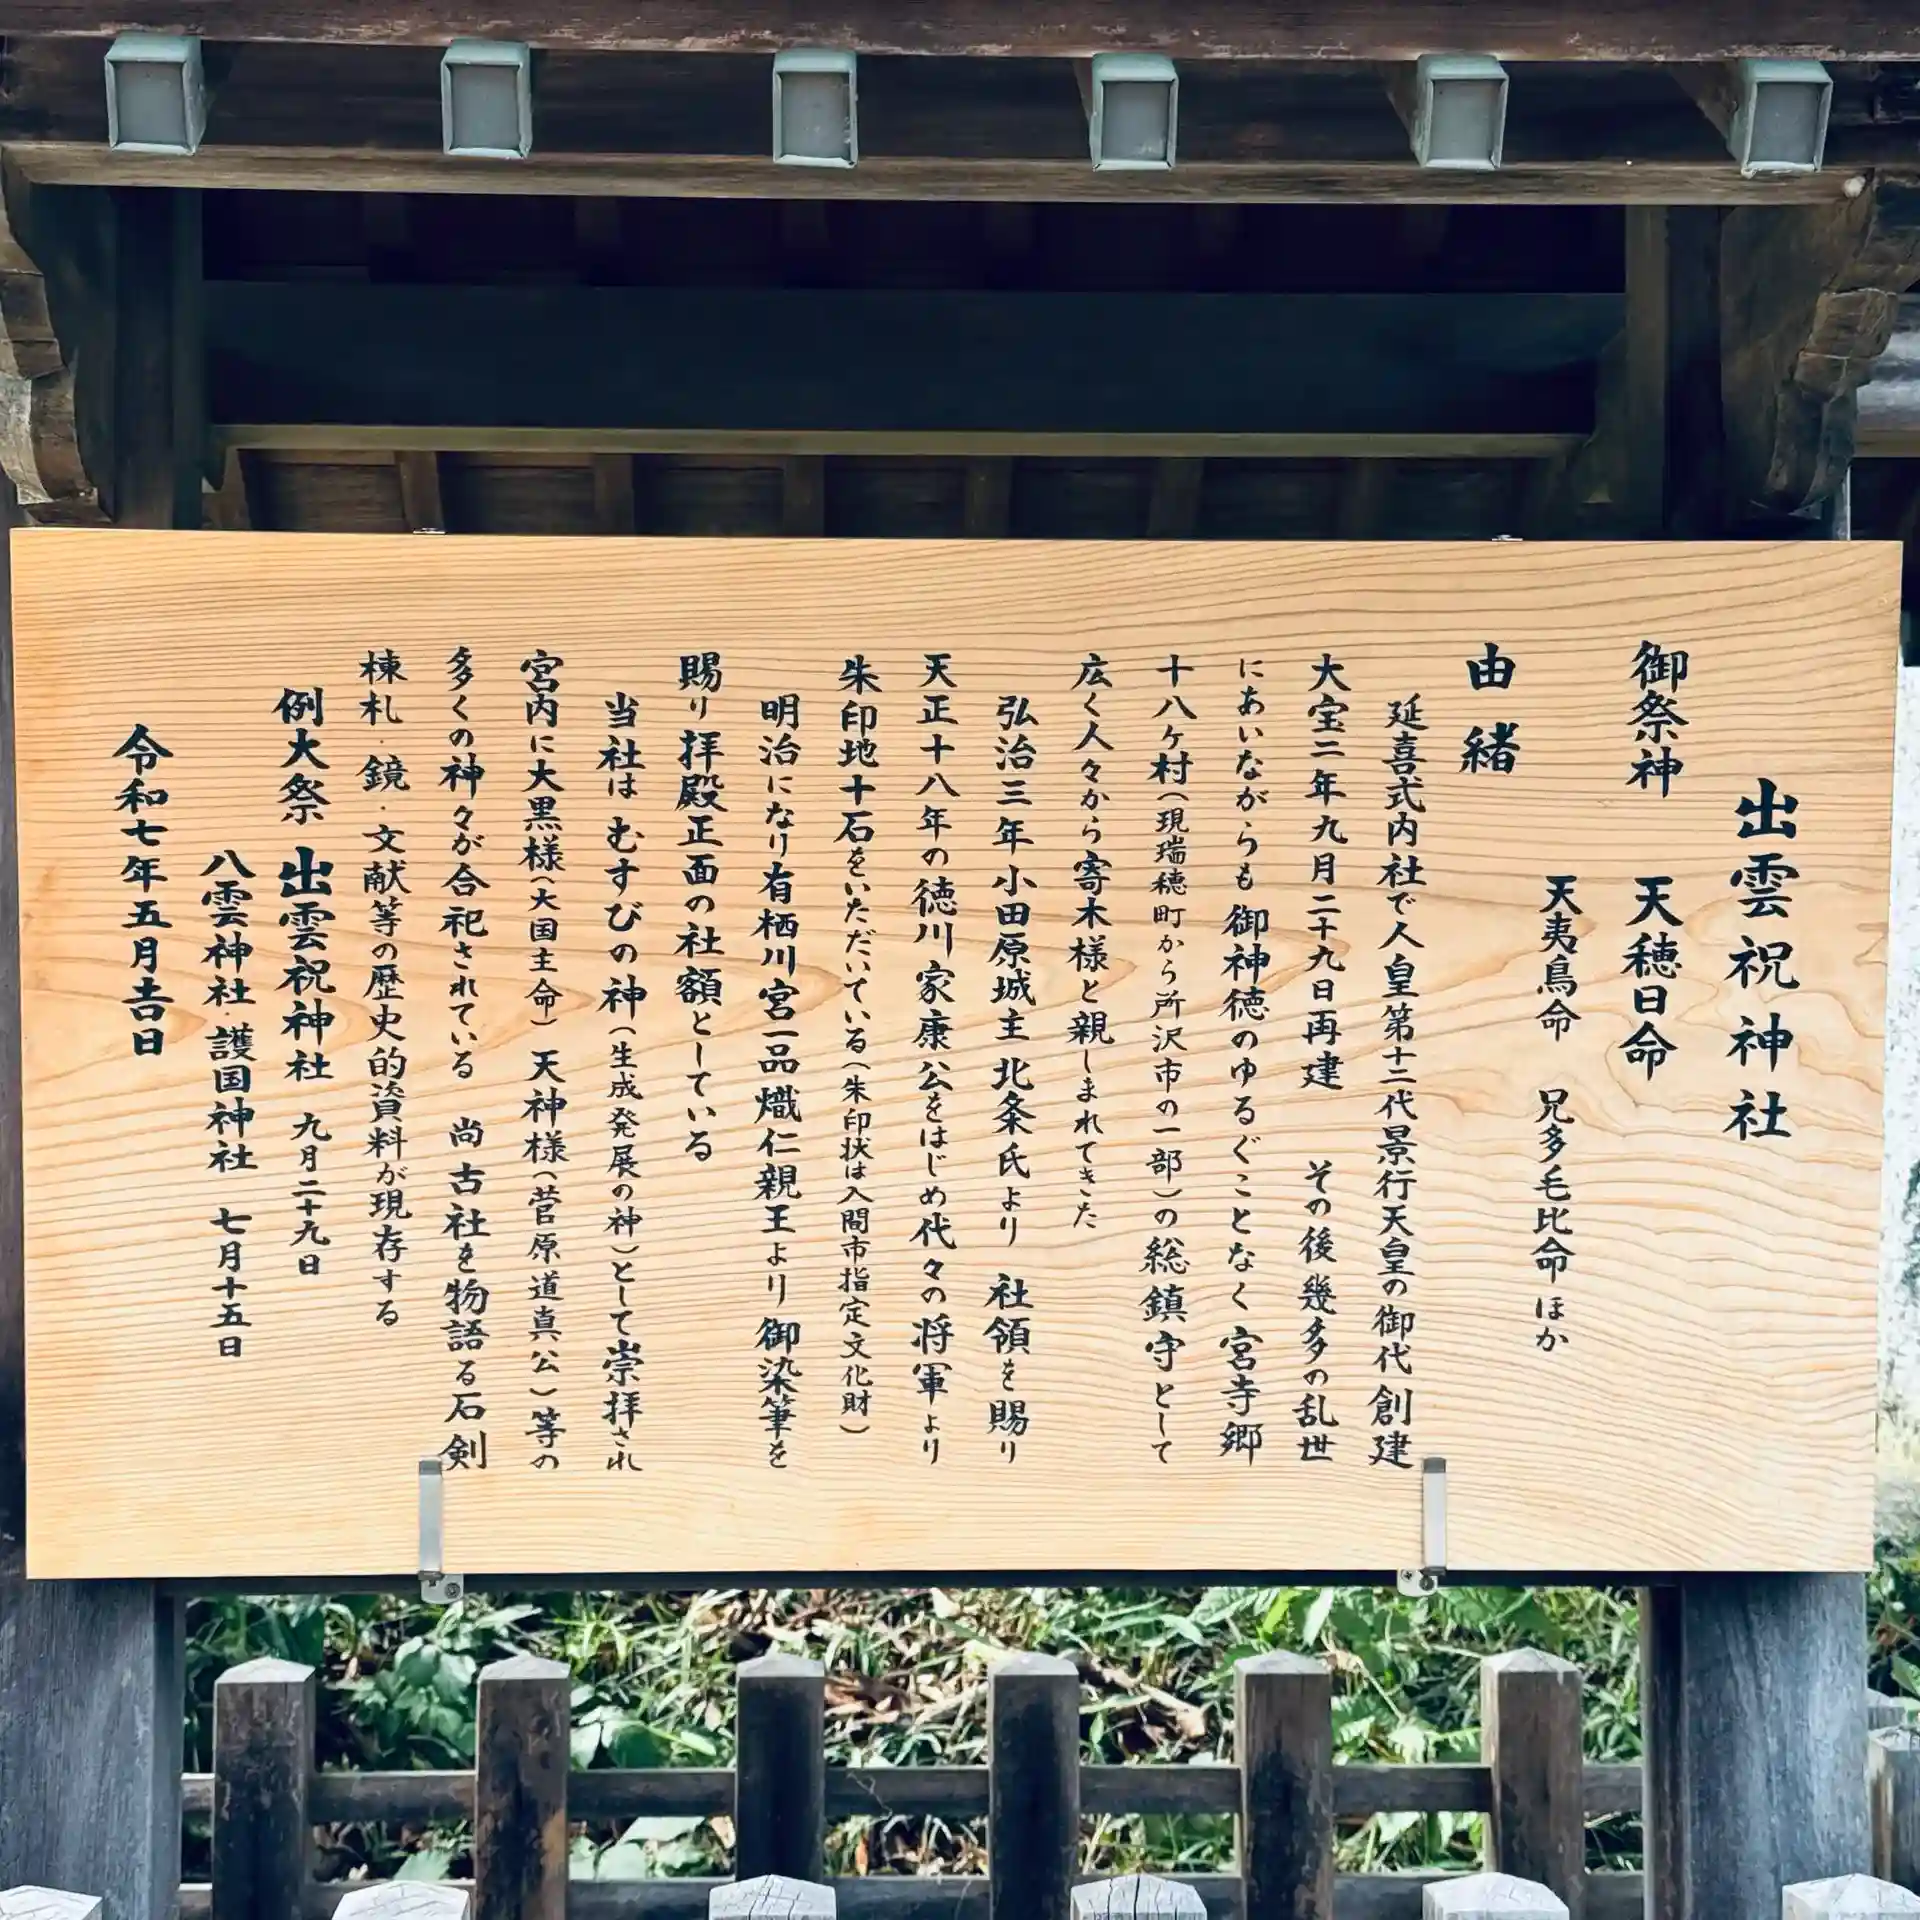 出雲祝神社
御祭神　天穂日命
天夷鳥命　兄多毛比命　ほか
由緒
延喜式内社で人皇第十二代景行天皇の御代創建
大宝二年九月二十九日再建　その後幾多の乱世
にあいながらも御神徳のゆるぐことなく宮寺郷
十八ヶ村（現瑞穂町から所沢市の一部）の総鎮守として
広く人々から寄木様と親しまれてきた
弘治三年小田原城主北条氏より　社領を賜り
天正十八年の徳川家康公をはじめ代々の将軍より
朱印地十石をいただいている（朱印状は入間市指定文化財）
明治になり有栖川宮一品熾仁親王より御染筆を
賜り拝殿正面の社額としている
当社はむすびの神（生成発展の神）として崇拝され
宮内に大黒様（大国主命）天神様（菅原道真公）等の
多くの神々が合祀されている　尚古社を物語る石剣
棟札・鏡・文献等の歴史的資料が現存する
例大祭　出雲祝神社　九月二十九日
八雲神社・護国神社　七月十五日
令和七年五月吉日